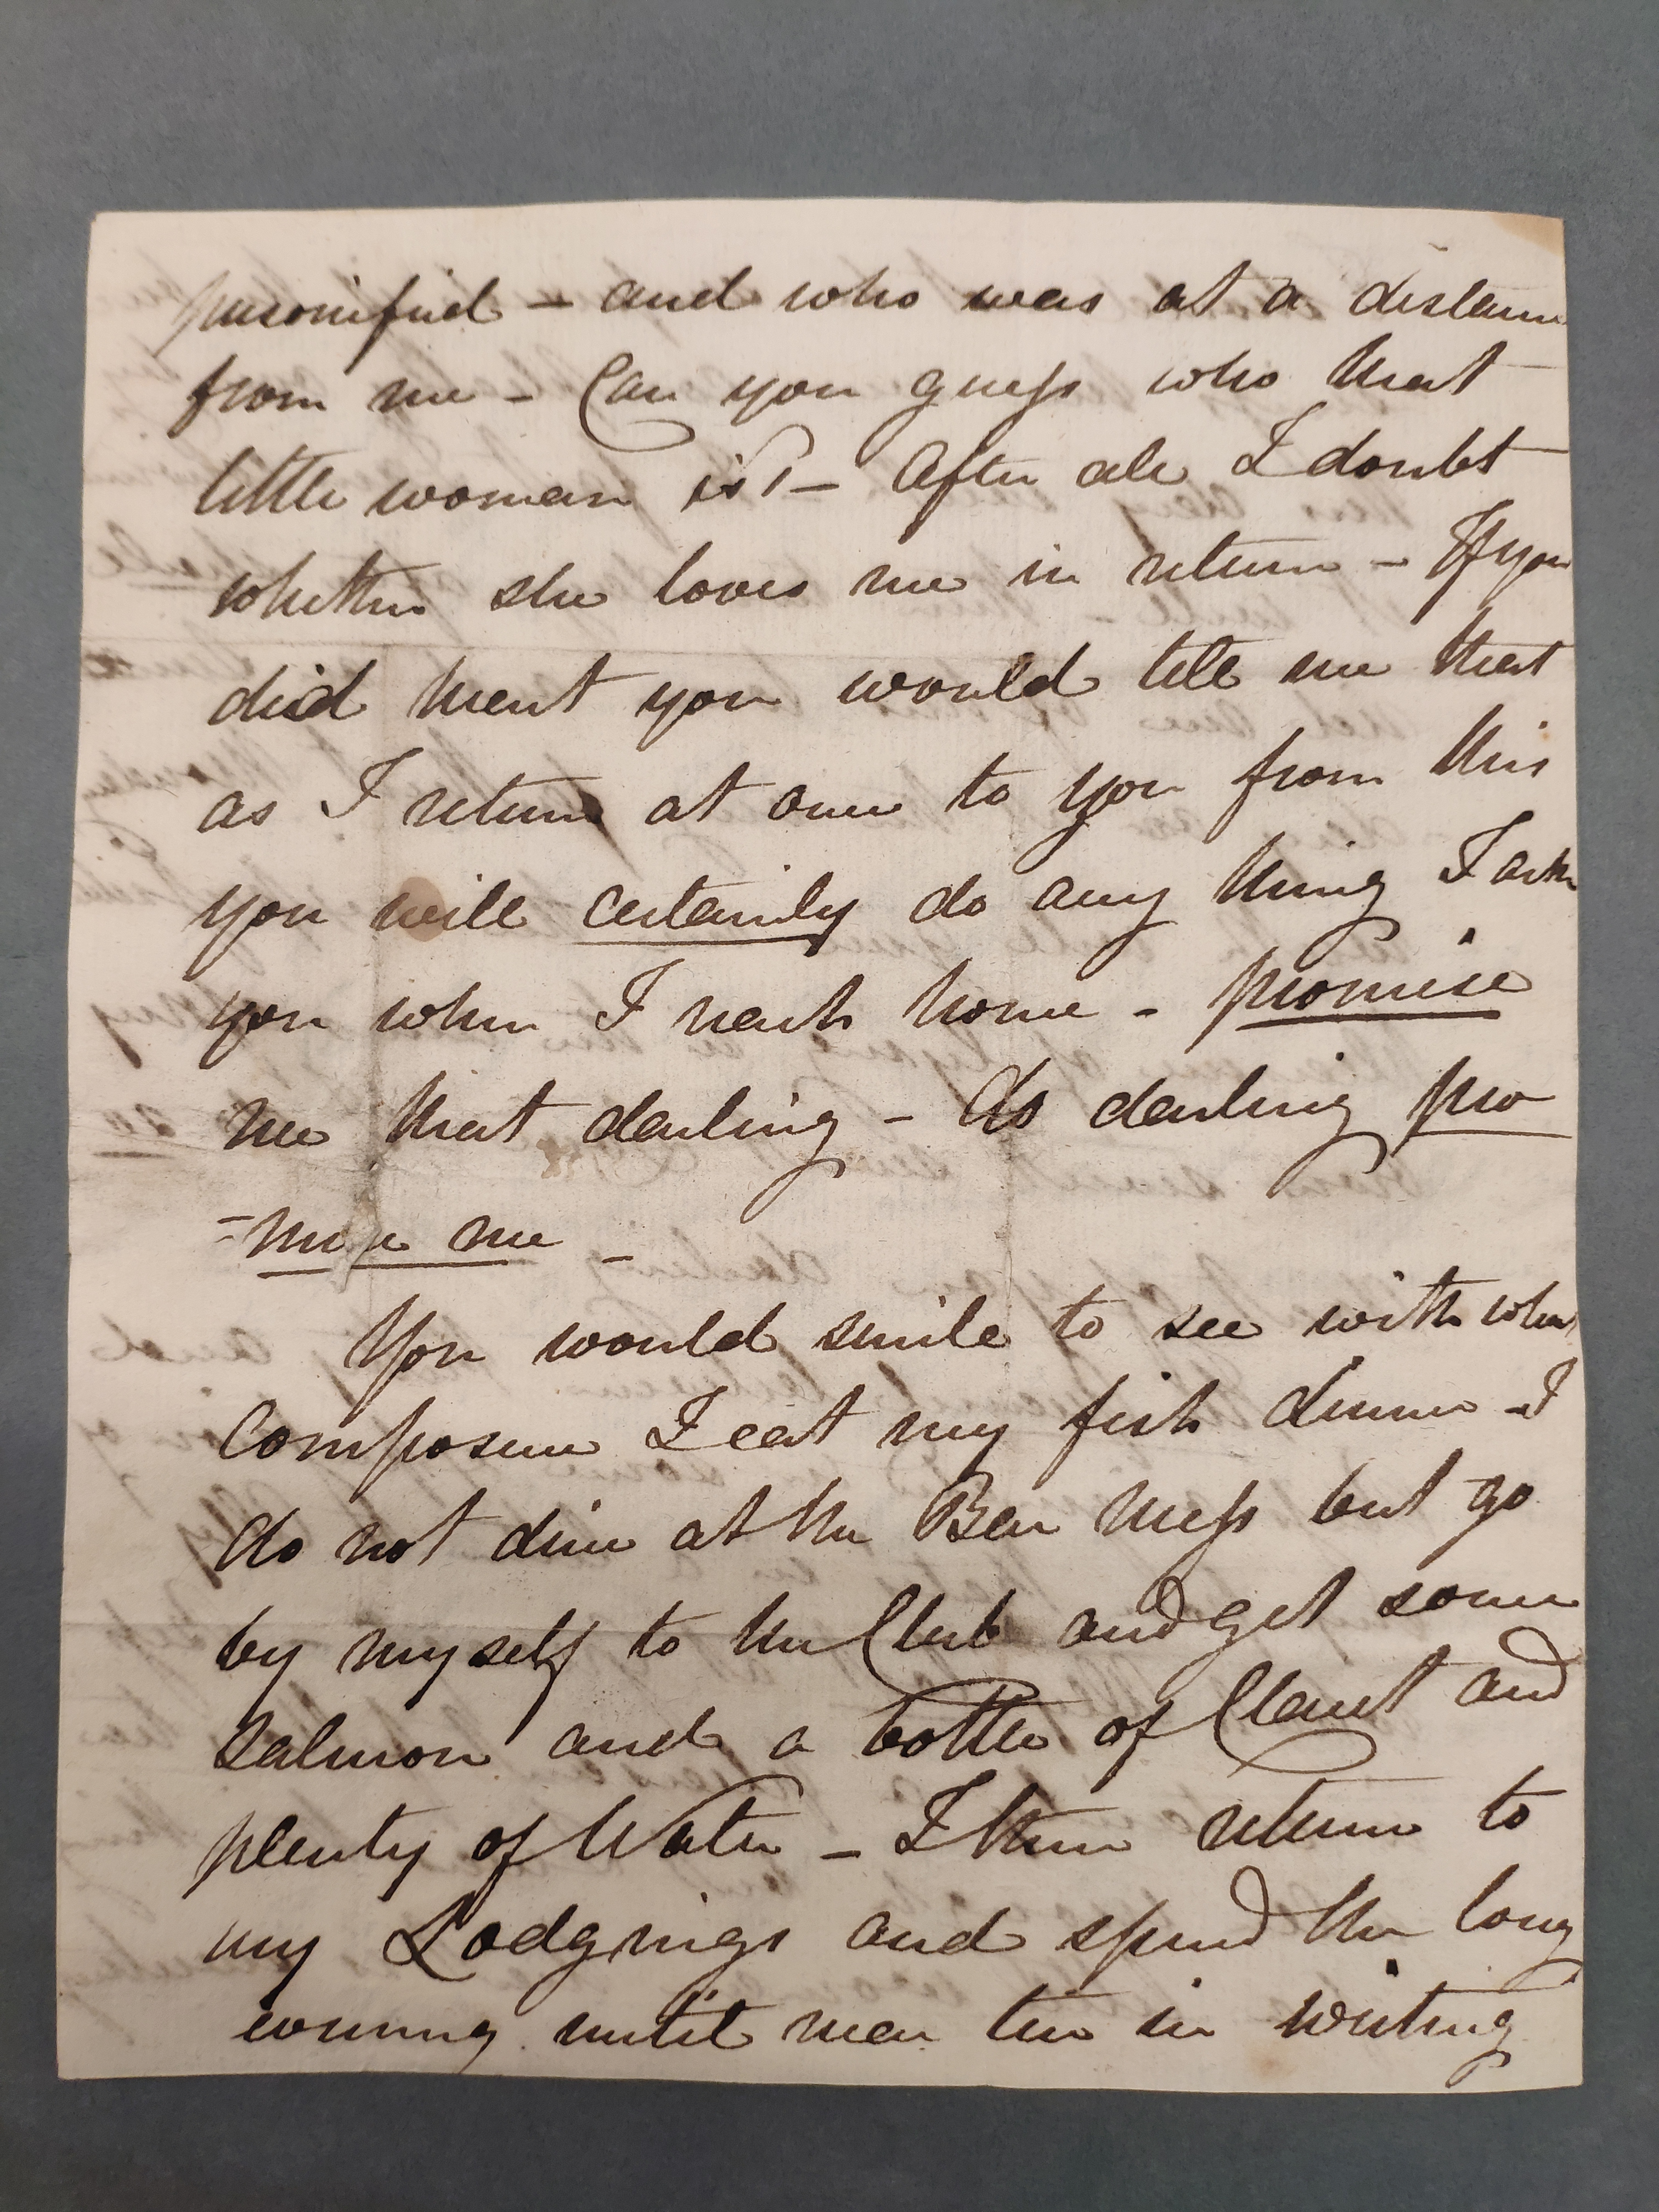 personified - and who was at a distance
from me - Can you guess who that
little woman is? - After all I doubt
whether she loves me in return - If you
did ment you would tell me that
as I return at once to you from this
you will certainly do any thing I ask
you when I reach home - promise
me that darling - do darling pro
=mise me -
You would smile to see with what
Composure I eat my fish dinner - I
do not dine at the Bar Mess but go
by myself to the Club and get some
Salmon and a bottle of Claret and
plenty of Water - I then return to
my Lodgings and spend the long
evening until near ten in writing